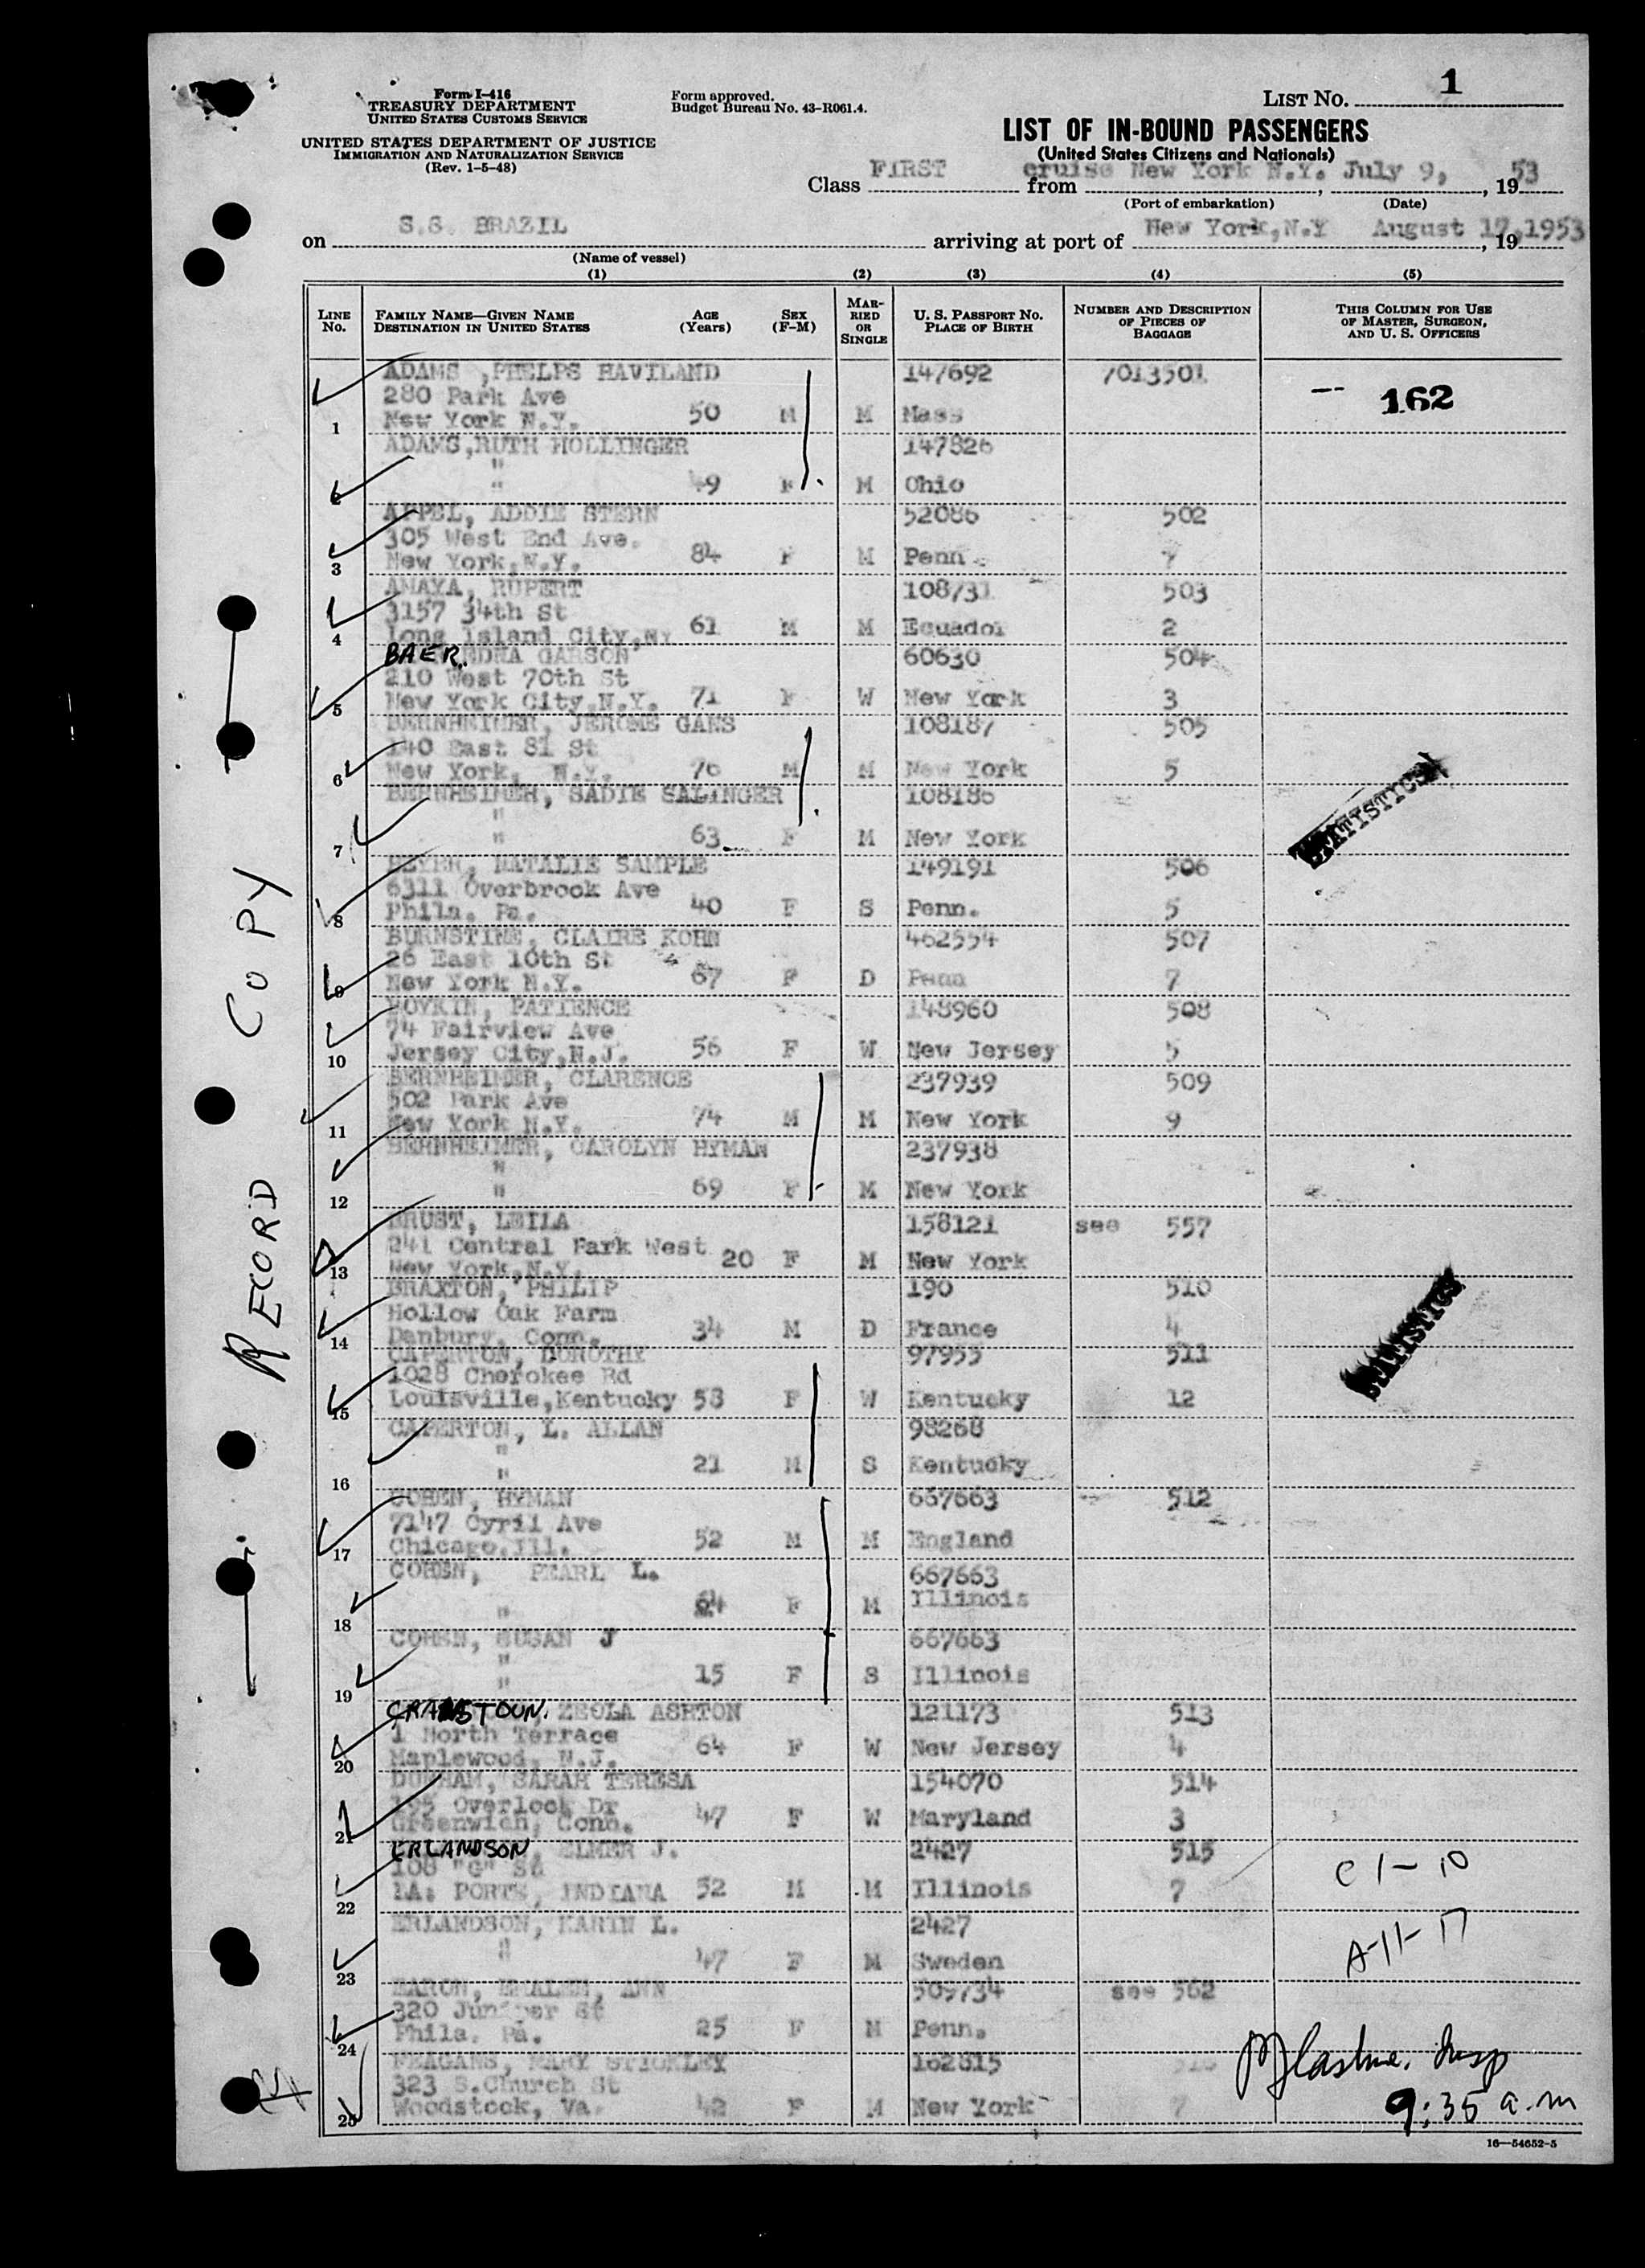 Form I-416
TREASURY DEPARTMENT
UNITED STATES CUSTOMS SERVICE
UNITED STATES DEPARTMENT OF JUSTICE
IMMIGRATION AND NATURALIZATION SERVICE
(Rev. 1-5-48)
Form approved.
Budget Bureau No. 43-R061.4.
LIST NO. 1
LIST OF IN-BOUND PASSENGERS
(United States Citizens and Nationals)
Class FIRST from cruise New York N.Y. July 9, 1953
(Port of embarkation) (Date)
on S.S. BRAZIL arriving at port of New York,N.Y August 17,1953, 19
(Name of vessel)
(1) (2) (3) (4) (5)
LINE NO. FAMILY NAME—GIVEN NAME DESTINATION IN UNITED STATES AGE (Years) SEX (F-M) MARRIED OR SINGLE U. S. PASSPORT NO. PLACE OF BIRTH NUMBER AND DESCRIPTION OF PIECES OF BAGGAGE THIS COLUMN FOR USE OF MASTER, SURGEON, AND U. S. OFFICERS
ADAMS ,PHELPS HAVILAND 147692 7013501
280 Park Ave -- 162
1 New York N.Y. 50 M M Mass
ADAMS,RUTH HOLLINGER 147826
"
2 " 49 F M Ohio
APPEL, ADDIE STERN 52086 502
305 West End Ave.
3 New York,N.Y. 84 F M Penn. 7
AMAYA, RUPERT 108731 503
3157 34th St
4 Long Island City,NY 61 M M Ecuador 2
BAER. EDNA GARSON 60630 504
210 West 70th St
5 New York City,N.Y. 71 F W New York 3
BERNHEIMER, JEROME GANS 108187 505
140 East 81 St
6 New York, N.Y. 76 M M New York 5
BERNHEIMER, SADIE SALINGER 108186
"
7 " 63 F M New York
STATISTICS
BEYER, NATALIE SAMPLE 149191 506
6311 Overbrook Ave
8 Phila. Pa. 40 F S Penn. 5
BURNSTINE, CLAIRE KOHN 462554 507
26 East 10th St
9 New York N.Y. 67 F D Penn 7
BOYKIN, PATIENCE 148960 508
74 Fairview Ave
10 Jersey City,N.J. 56 F W New Jersey 5
BERNHEIMER, CLARENCE 237939 509
502 Park Ave
11 New York N.Y. 74 M M New York 9
BERNHEIMER, CAROLYN HYMAN 237938
"
12 " 69 F M New York
BRUST, LEILA 158121 see 557
241 Central Park West
13 New York,N.Y. 20 F M New York
BRAXTON, PHILIP 190 510
Hollow Oak Farm
14 Danbury, Conn. 34 M D France 4
STATISTICS
CAPERTON, DOROTHY 97955 511
1028 Cherokee Rd
15 Louisville,Kentucky 58 F W Kentucky 12
CAPERTON, L. ALLAN 98268
"
16 " 21 M S Kentucky
COHEN, HYMAN 667663 512
7147 Cyril Ave
17 Chicago,Ill. 52 M M England
COHEN, PEARL L. 667663
18 " 64 F M Illinois
COHEN, SUSAN J 667663
"
19 " 15 F S Illinois
CRANSTOUN. ZEOLA ASHTON 121173 513
1 North Terrace
20 Maplewood, N.J. 64 F W New Jersey 4
DURHAM, SARAH TERESA 154070 514
195 Overlook Dr
21 Greenwich, Conn. 47 F W Maryland 3
ERLANDSON, ELMER J. 2427 515
108 "G" St C 1-10
22 LA. PORTE, INDIANA 52 M M Illinois 7
ERLANDSON, KARIN L. 2427
" A-11-17
23 " 47 F M Sweden
509734 see 562
320 Juniper St
24 Phila. Pa. 25 F M Penn.
FEAGANS, MARY STICKLEY 162815
323 S.Church St
25 Woodstock, Va. 42 F M New York 7
Insp
9:35 a.m
16—54652-5
RECORD COPY